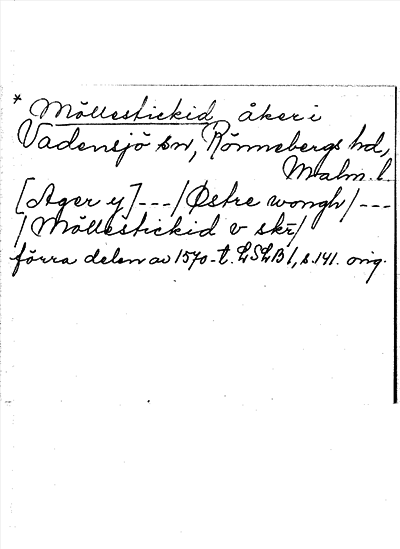 * Möllestickid, åker i
Vadensjö sn, Rönnebergs hd,
Malm. l.
[Ager y] --- / Østre wongh / ---
/ Möllestickid v skr̄ /
förra delen av 1570-t. LSLB 1, s. 141. orig.